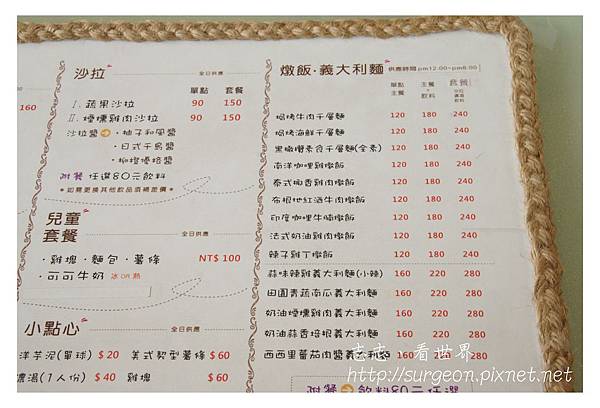 160
沙拉 全日供應
單點 套餐
I. 蔬果沙拉 90 150
II. 煙燻雞肉沙拉 90 150
沙拉醬 • 柚子和風醬
• 日式千島醬
• 柳橙優格醬
附餐 任選80元飲料
*如需更換其他飲品須補差價*
兒童套餐 全日供應
• 雞塊 • 麵包 • 薯條 NT$ 100
• 可可牛奶 冰 OR 熱
小點心 全日供應
洋芋泥(單球) $ 20 美式契型薯條 $ 60
濃湯(1人份) $ 40 雞塊 $ 60
燉飯 · 義大利麵 供應時間 pm12:00~pm8:00
單點 主餐 套餐
主餐 + 飲料
焗烤牛肉千層麵 120 180 240
焗烤海鮮千層麵 120 180 240
黑橄欖素食千層麵(全素) 120 180 240
南洋咖哩雞燉飯 120 180 240
泰式椒香雞肉燉飯 120 180 240
布根地紅酒牛肉燉飯 120 180 240
印度咖哩牛腩燉飯 120 180 240
法式奶油雞肉燉飯 120 180 240
辣子雞丁燉飯 120 180 240
蒜味辣雞義大利麵(小辣) 160 220 280
田園青蔬南瓜義大利麵 160 220 280
奶油煙燻雞義大利麵 160 220 280
奶油蒜香培根義大利麵 160 220 280
西西里蕃茄肉醬義大利麵 160 220 280
附餐 飲料80元任選
志志、看世界
http://surgeon.pixnet.net